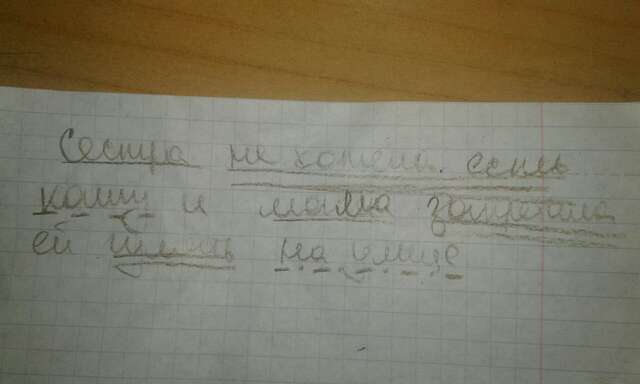 Сестра не хотела есть
кашу и мамка запретила
ей гулять на улице